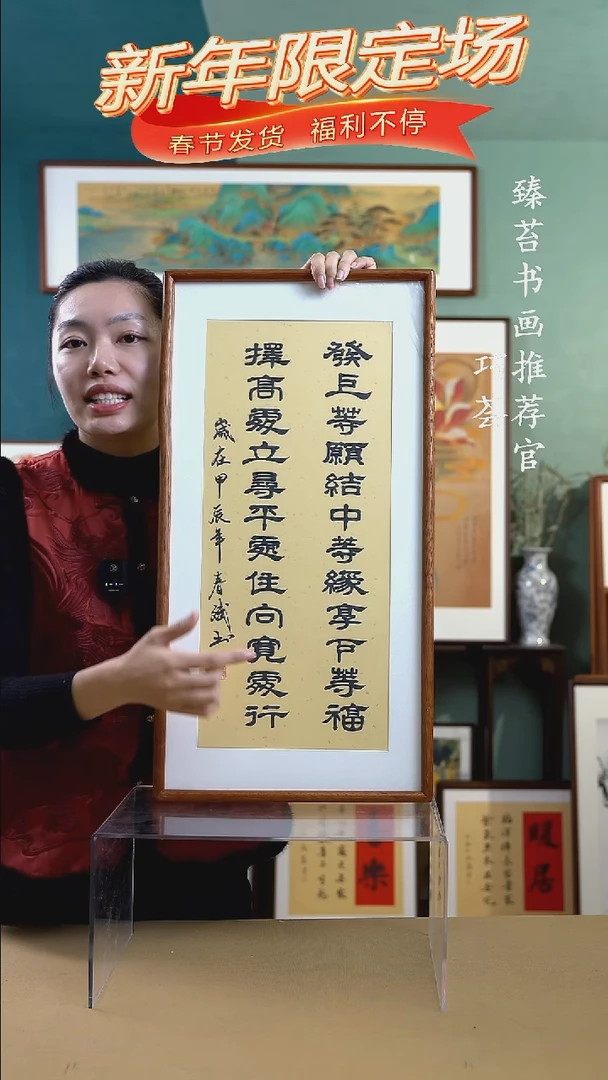 新年限定场
春节发货 福利不停
臻苔书画推荐官
發巨等願結中等緣享下等福
擇高處立尋平處住向寬處行
歲在甲辰年 春斌书
暖居
樂